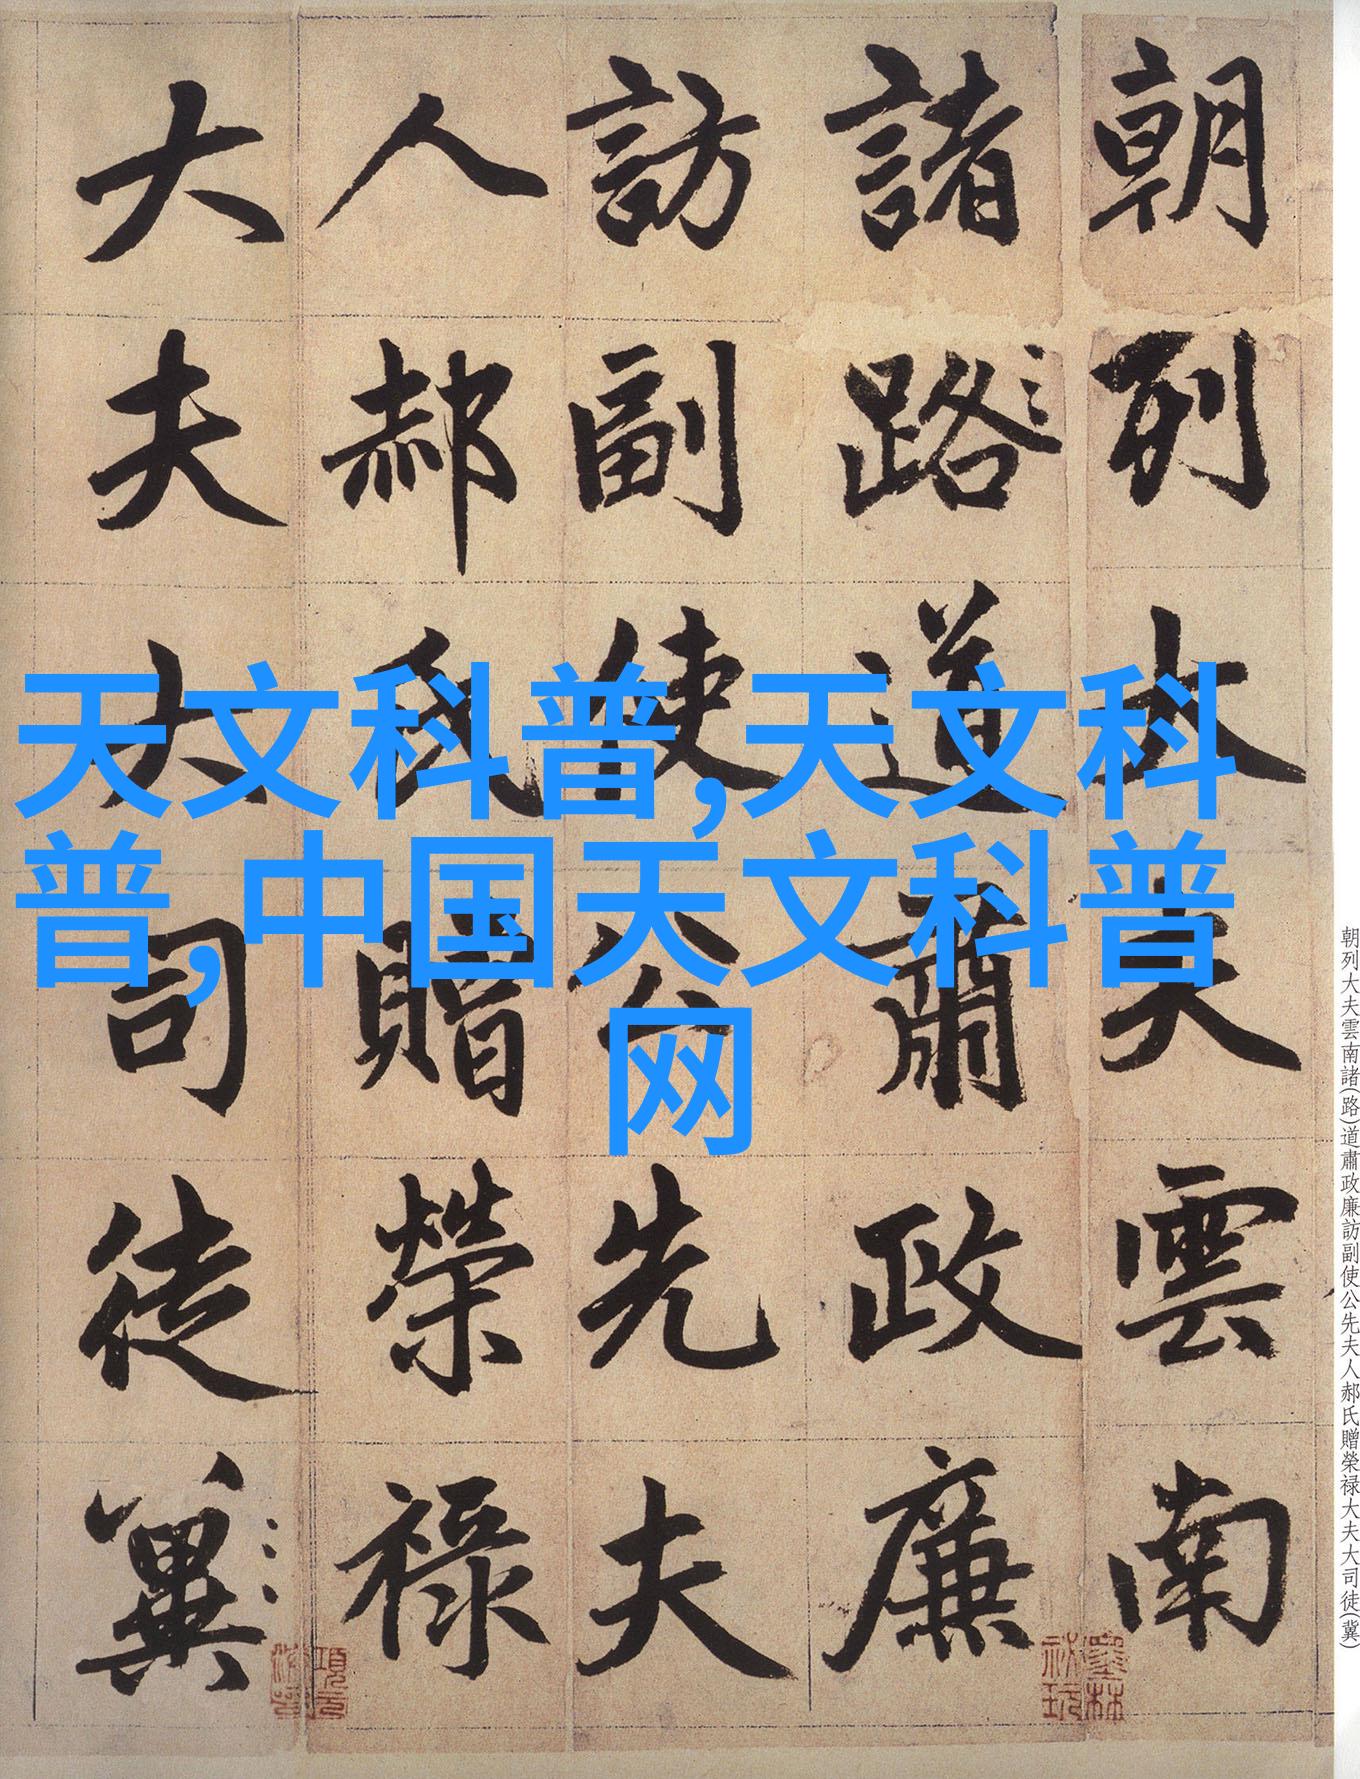 朝列大夫雲南
諸路道肅政廉
訪副使公先夫
人郝氏贈榮禄
大夫大司徒冀
天文科普,天文科
普,中国天文科普
网
朝列大夫雲南諸(路)道肅政廉訪副使公先夫人郝氏贈榮禄大夫大司徒(冀)